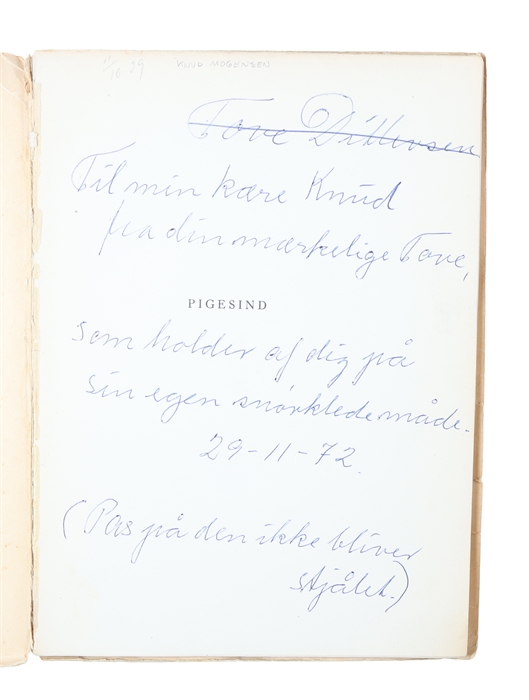 11/10 39 KNUD MOGENSEN
Tove Ditlevsen
Til min kære Knud
fra din mærkelige Tove,
PIGESIND
som holder af dig på
sin egen snørklede måde.
29-11-72.
(Pas på den ikke bliver
stjålet.)